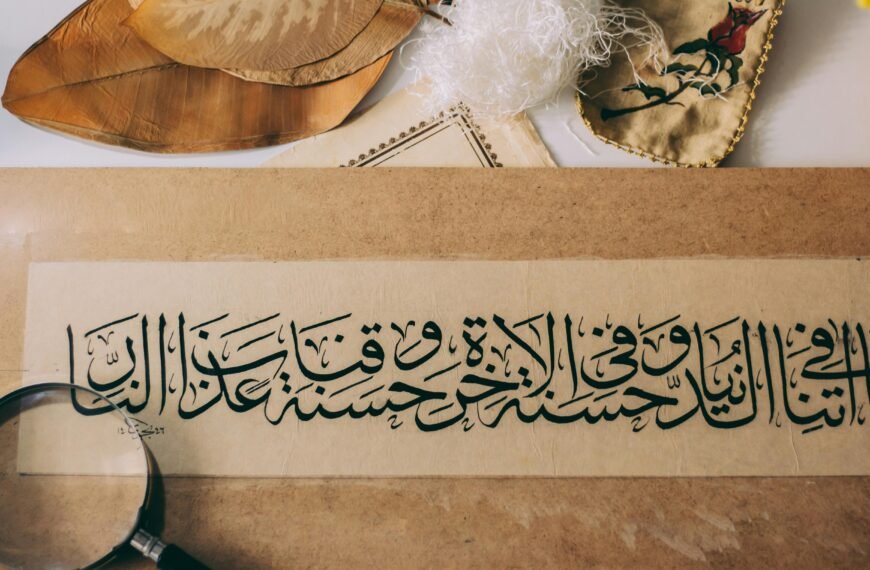 اتِنَا فِى الدُّنيَا حَسَنَة وَفِى الاخِرَة حَسَنَة وَقِنَا عَذَابَ النَّار